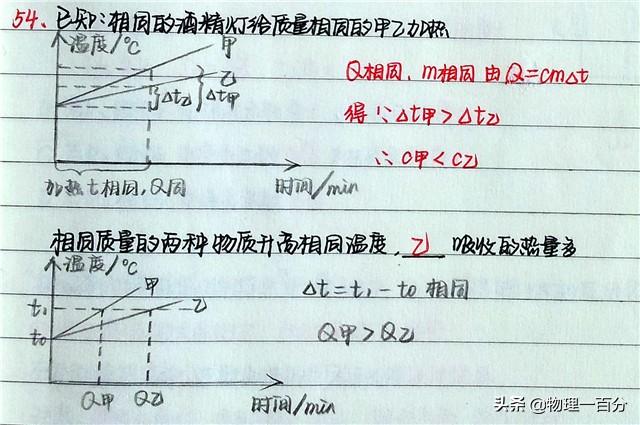 54、已知:相同的酒精灯给质量相同的甲乙加热
温度/℃
甲
乙
Δt乙
Δt甲
Q相同,m相同 由Q=cmΔt
得 ∵Δt甲>Δt乙
∴ c甲<c乙
加热t相同,Q同
时间/min
相同质量的两种物质升高相同温度,乙 吸收的热量多
温度/℃
甲
乙
t₁
t₀
Δt=t₁-t₀ 相同
Q甲>Q乙
Q甲
Q乙
时间/min
头条 @物理一百分